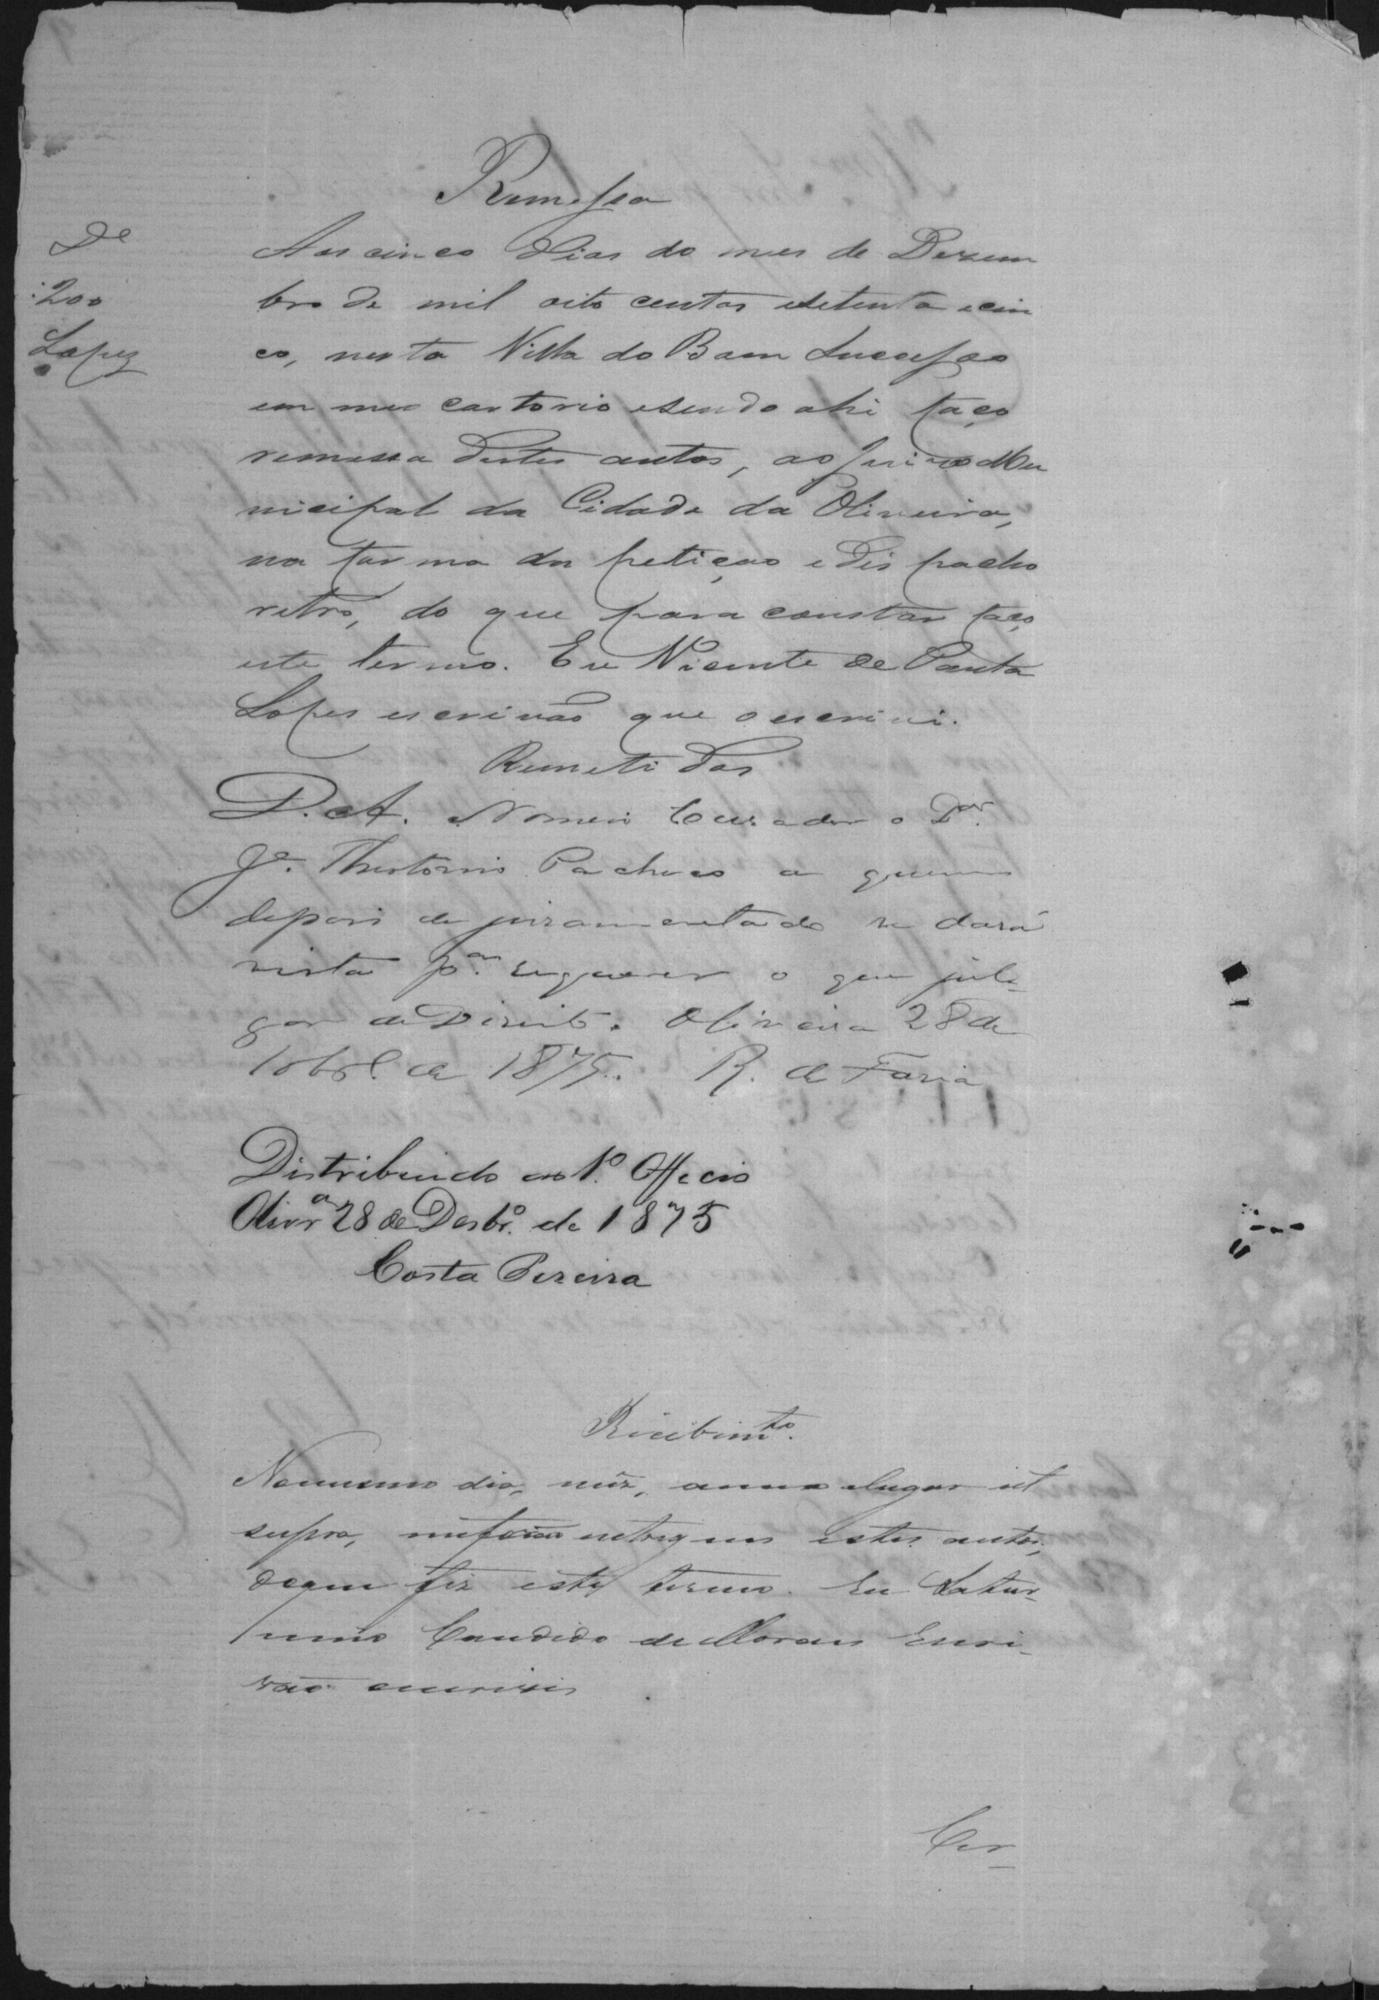 Remessa
De
200
Lopes
Aos cinco dias do mes de Dezem
bro de mil oito centos esetenta ecin
co, nesta Villa do Bom Sucesso
em meu cartorio esendo ahi faço
remessa destes autos, ao Juizo Mu
nicipal da Cidade da Oliveira,
na forma da petiçao e dispacho
retro, do que para constar faço
este termo. Eu Vicente de Paula
Lopes escrivão que o escrivi.
Remetidos
D. A. Nomeio Curador o Dor.
Je. Theotonio Pacheco a quem
depois de juramentado se dará
vista pa. requerer o que jul-
gar de Direito. Oliveira 28 de
10br. de 1875. R. de Faria
Distribuido ao 1º. Officio
Olivra 28 de Desbro. de 1875
Costa Pereira
Recibimto.
Nomesmo dia, mez, anno elugar ut
supra, me forão entregues estes autos,
doque fiz este termo. Eu Satur-
nino Candido de Moraes Escri-
vão escrivi
Cer-